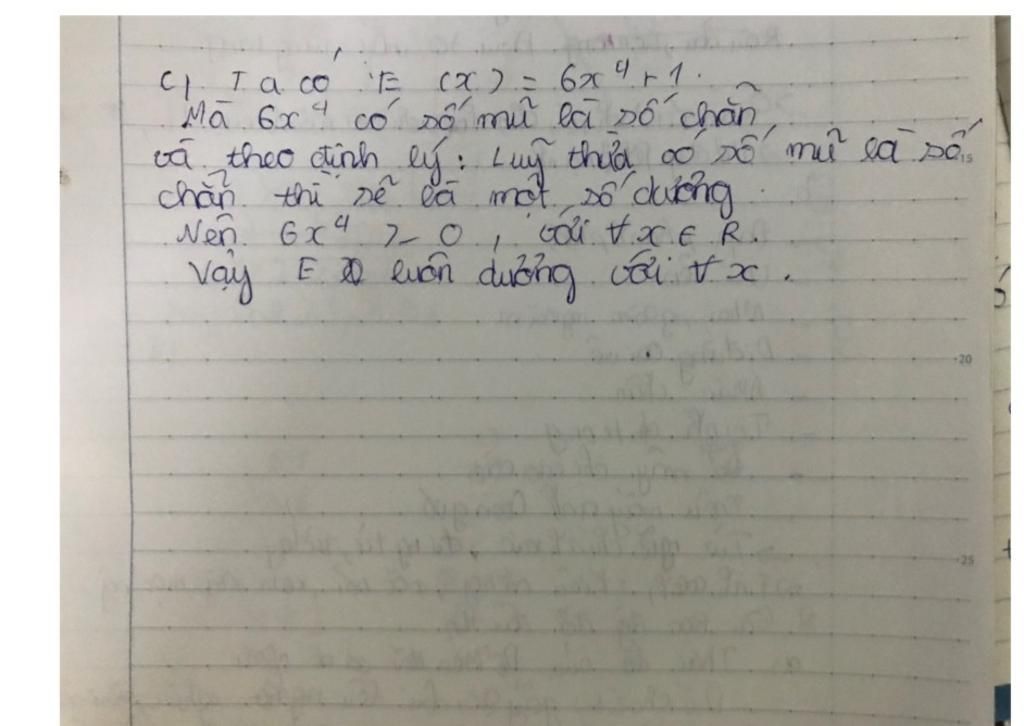 c) Ta có E (x) = 6x⁴ + 1.
Mà 6x⁴ có số mũ là số chẵn
và theo định lý: Luỹ thừa có số mũ là số
chẵn thì sẽ là một số dương
Nên 6x⁴ ≥ 0, với ∀x ∈ R.
Vậy E luôn dương với ∀x.
20
25